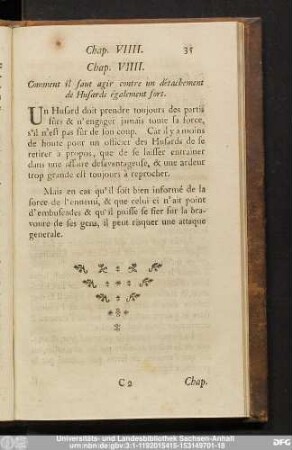 Chap. VIIII. 35
Chap. VIIII.
Comment il faut agir contre un détachement
de Husards également fort.
Un Husard doit prendre toujours des partis
sûrs & n'engager jamais toute sa force,
s'il n'est pas sûr de son coup. Car il y a moins
de honte pour un officier des Husards de se
retirer à propos, que de se laisser entrainer
dans une affaire desavantageuse, & une ardeur
trop grande est toujours à reprocher.
Mais en cas qu'il soit bien informé de la
force de l'ennemi, & que celui ci n'ait point
d'embuscades & qu'il puisse se fier sur la bra-
voure de ses gens, il peut risquer une attaque
generale.
C 2 Chap.
Universitäts- und Landesbibliothek Sachsen-Anhalt
urn:nbn:de:gbv:3:1-1192015415-153149701-18
DFG